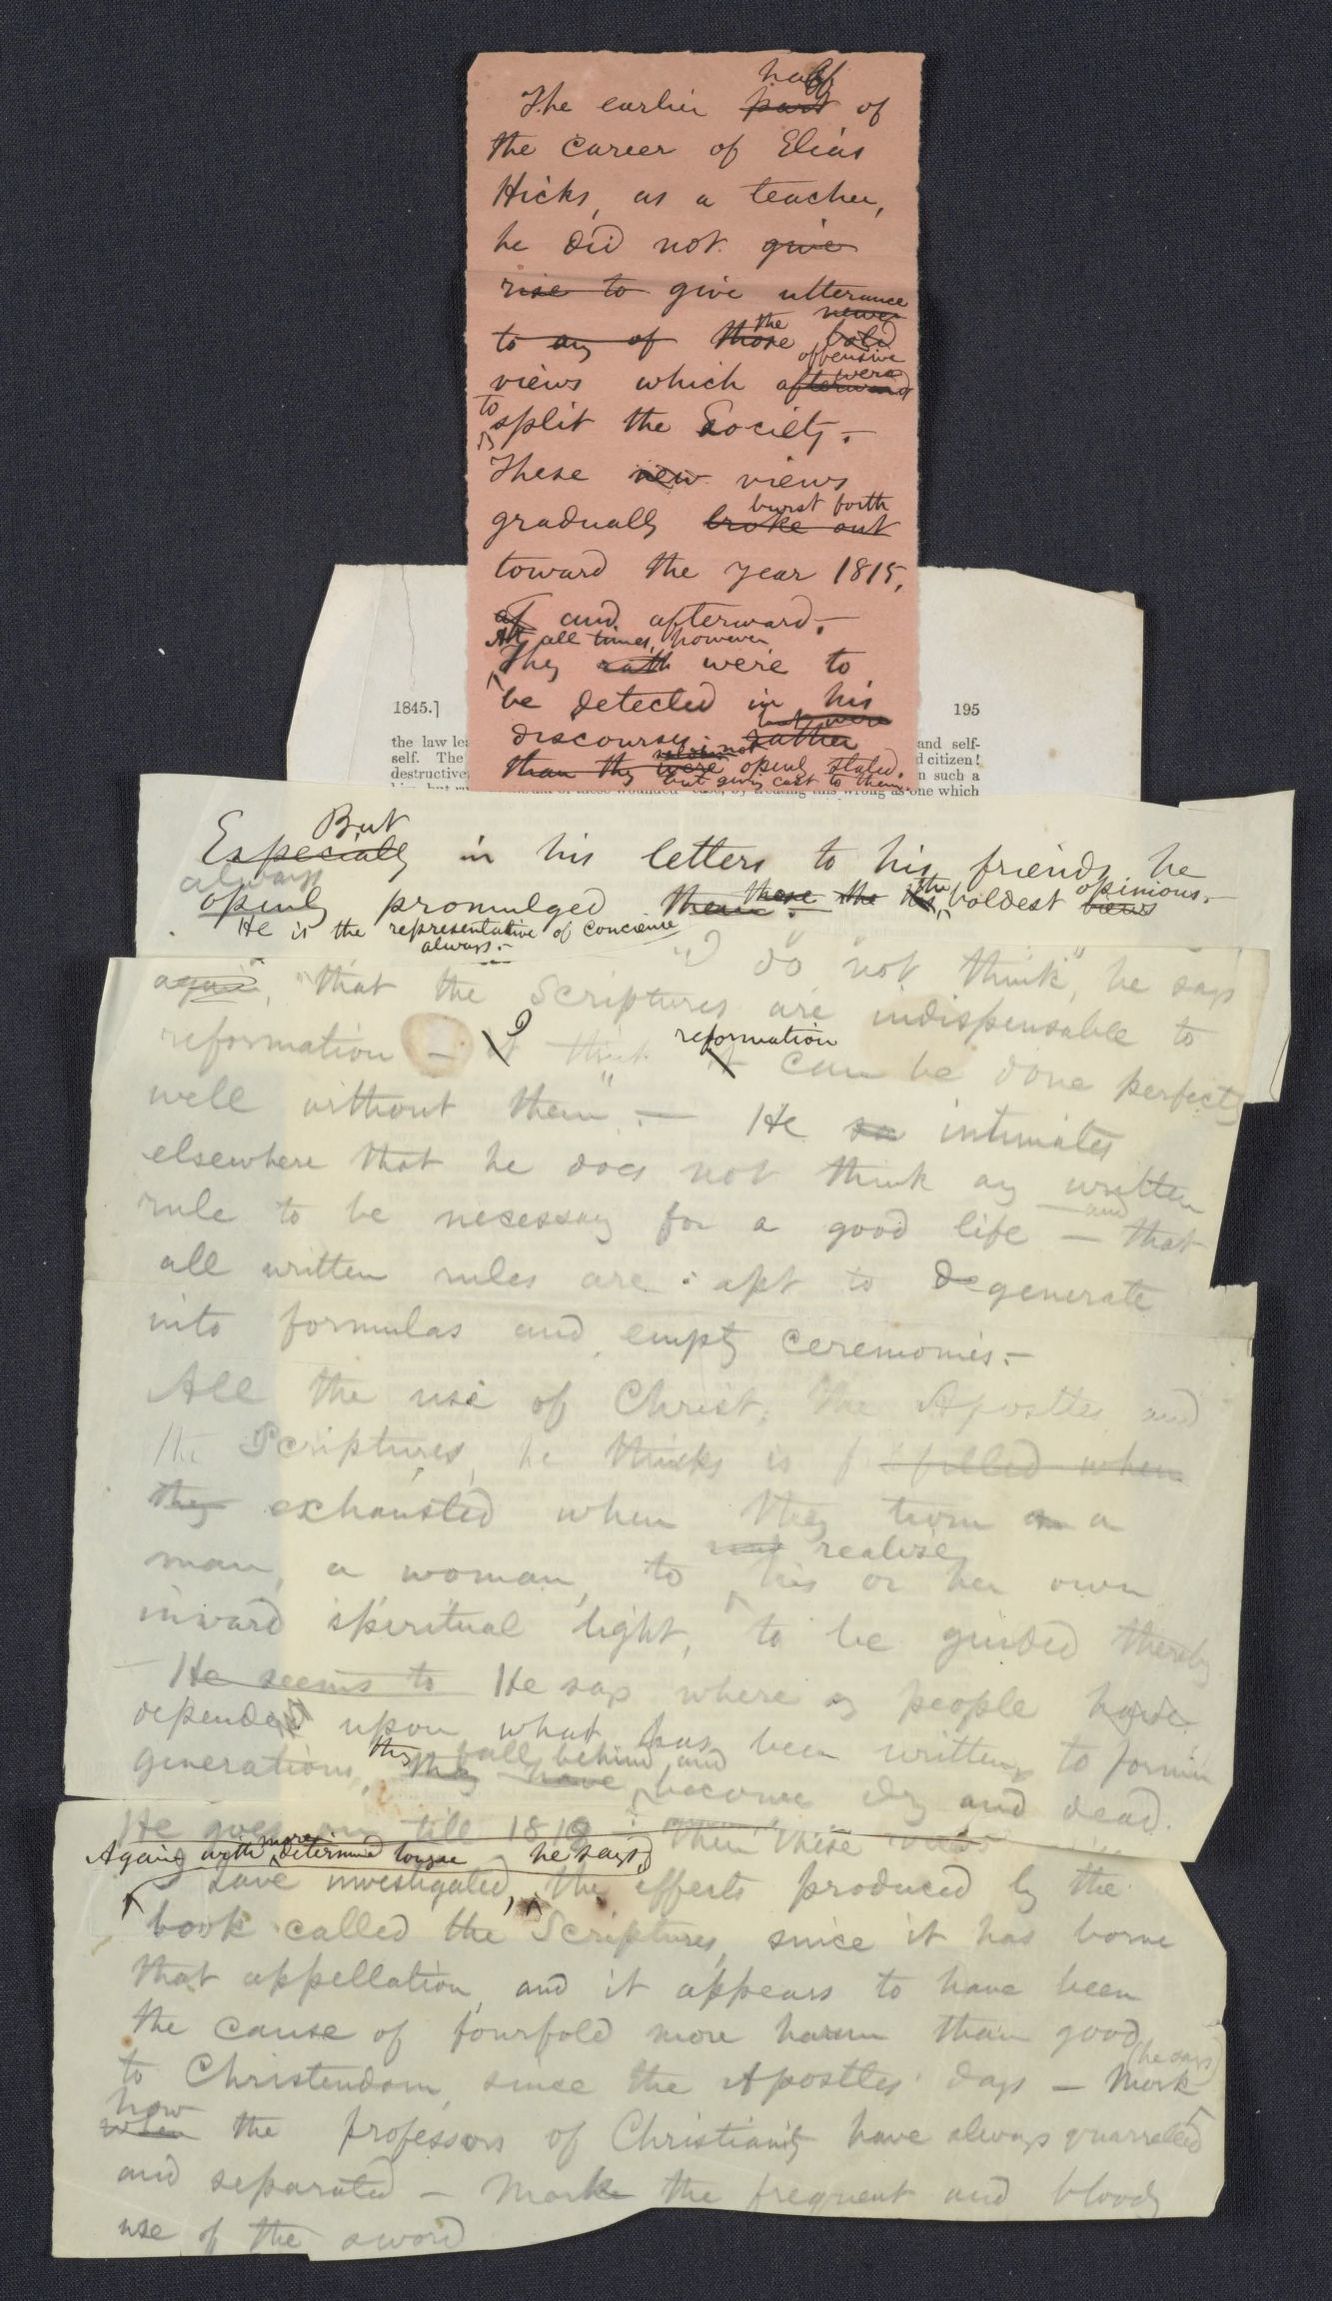 half
The earlier part of
the career of Elias
Hicks, as a teacher,
he did not give
rise to give utterance
the newer
to any of those bold
offensive
views which afterward were
to
split the Society.—
These new views
burst forth
gradually broke out
toward the year 1815,
at and afterward.—
At all times, however
They rath were to
be detected in his
but were
discourses. rather
were not
than they were openly stated.
but giving cast to them.
1845.]
195
the law le
and self-
self. The
d citizen!
destructive
n such a
one which
But
Especially in his letters to his friends he
always
openly promulged them: these the the boldest opinions.— views
He is the representative of concience
always.—
"I do not think", he says
again, "that the Scriptures are indispensable to
reformation — I think reformation it can be done perfectly
well without them". — He sa intimates
elsewhere that he does not think any written
rule to be necessary for a good life — and that
all written rules are apt to degenerate
into formulas and empty ceremonies.—
All the use of Christ, the Apostles and
the Scriptures, he thinks is fulfilled when
they exhausted when they turn a
realize
man, a woman, to his or her own
inward spiritual light, to be guided thereby
He seems to He says where a people have
depended upon what has been written, to former
they fall behind and
generations, they have become dry and dead.
He goes on till 1819: then these
Again, with more determined tongue he says,
I have investigated, the effects produced by the
book called the Scriptures, since it has borne
that appellation, and it appears to have been
the cause of fourfold more harm than good
(he says)
to Christendom, since the Apostles' days — Mark
how
when the professors of Christianity have always quarrelled
and separated — Mark the frequent and bloody
use of the sword